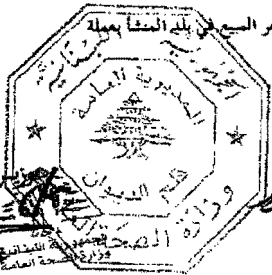 البيع في بلد المنشأ بعملة
الجمهورية اللبنانية
المديرية العامة
قلم الديوان
وزارة الصحة العامة
الجمهورية اللبنانية
وزارة الصحة العامة